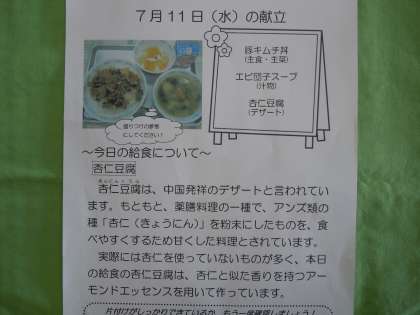 7月11日（水）の献立
豚キムチ丼
（主食・主菜）
エビ団子スープ
（汁物）
杏仁豆腐
（デザート）
盛りつけの参考
にしてください！
～今日の給食について～
杏仁豆腐
あんにんどうふ
杏仁豆腐は、中国発祥のデザートと言われてい
ます。もともと、薬膳料理の一種で、アンズ類の
種「杏仁（きょうにん）」を粉末にしたものを、食
べやすくするため甘くした料理とされています。
実際には杏仁を使っていないものが多く、本日
の給食の杏仁豆腐は、杏仁と似た香りを持つアー
モンドエッセンスを用いて作っています。
片付けがしっかりできているか、もう一度確認しましょう！